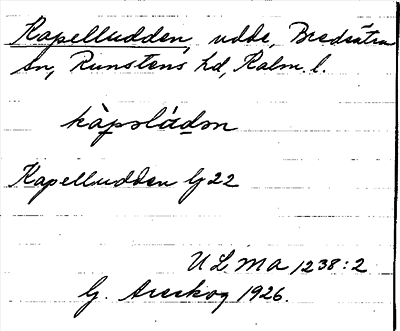 Kapelludden, udde, Bredsätra
sn, Runstens hd, Kalm. l.
kàpslúdən
Kapelludden G 22
ULMA 1238:2
G. Areskog 1926.